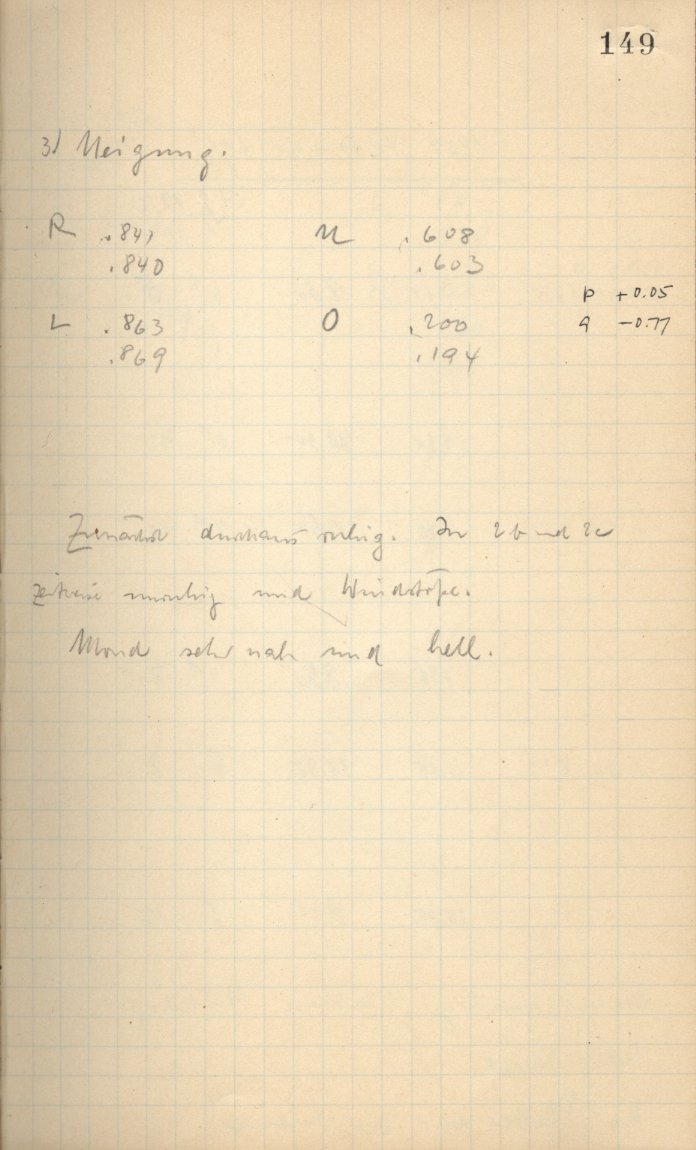 149
3) Neigung.
R .841 U .608
.840 .603
p +0.05
L .863 O .200 q -0.77
.869 .194
Zunächst durchaus ruhig. In 2b und 2c
zeitweise unruhig und Windstöße.
Mond sehr nah und hell.